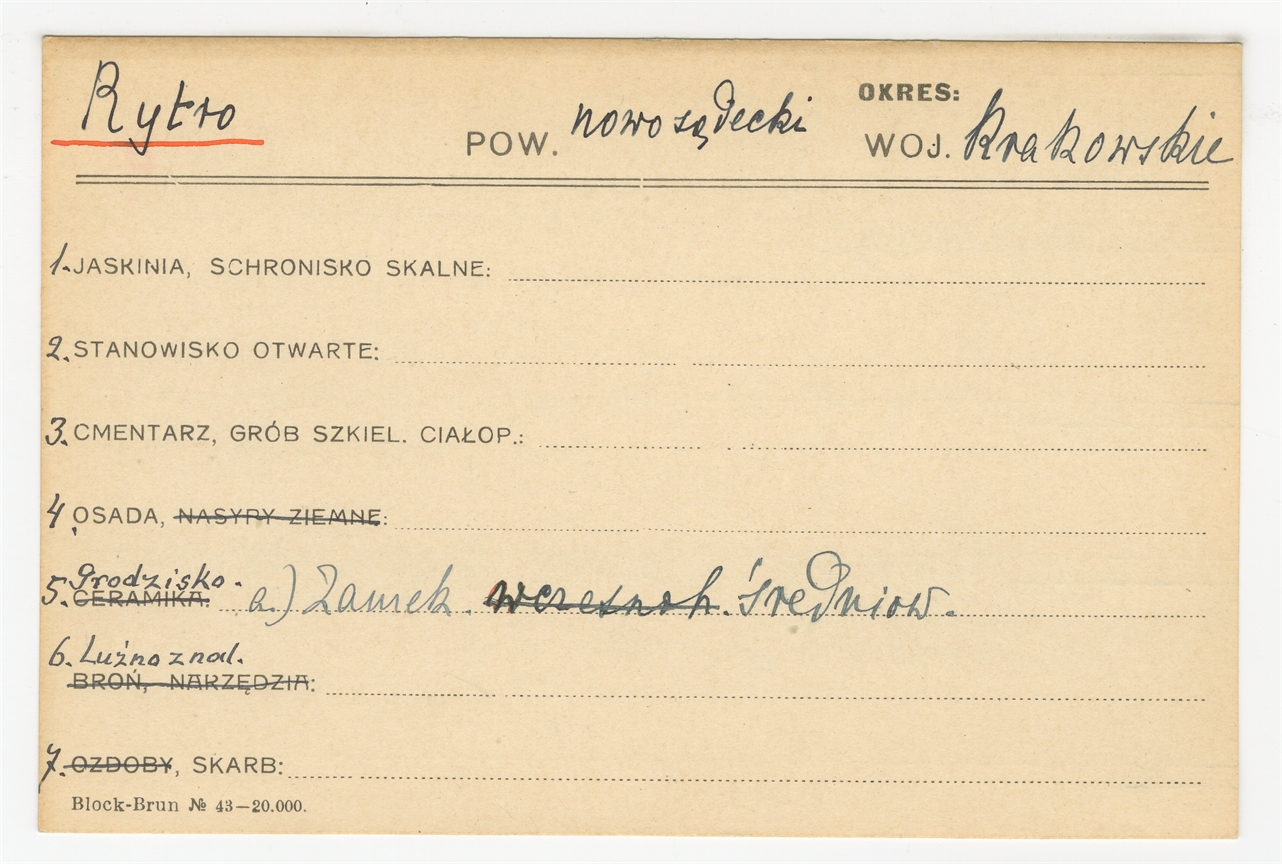 Rytro
POW. nowosądecki
OKRES:
WOJ. Krakowskie
1. JASKINIA, SCHRONISKO SKALNE:
2. STANOWISKO OTWARTE:
3. CMENTARZ, GRÓB SZKIEL. CIAŁOP.:
4. OSADA, NASYPY ZIEMNE:
Grodzisko.
5. CERAMIKA. a.) Zamek. wczesnoh. średniow.
6. Luźno znal.
BROŃ, NARZĘDZIA:
7. OZDOBY, SKARB:
Block-Brun № 43—20.000.